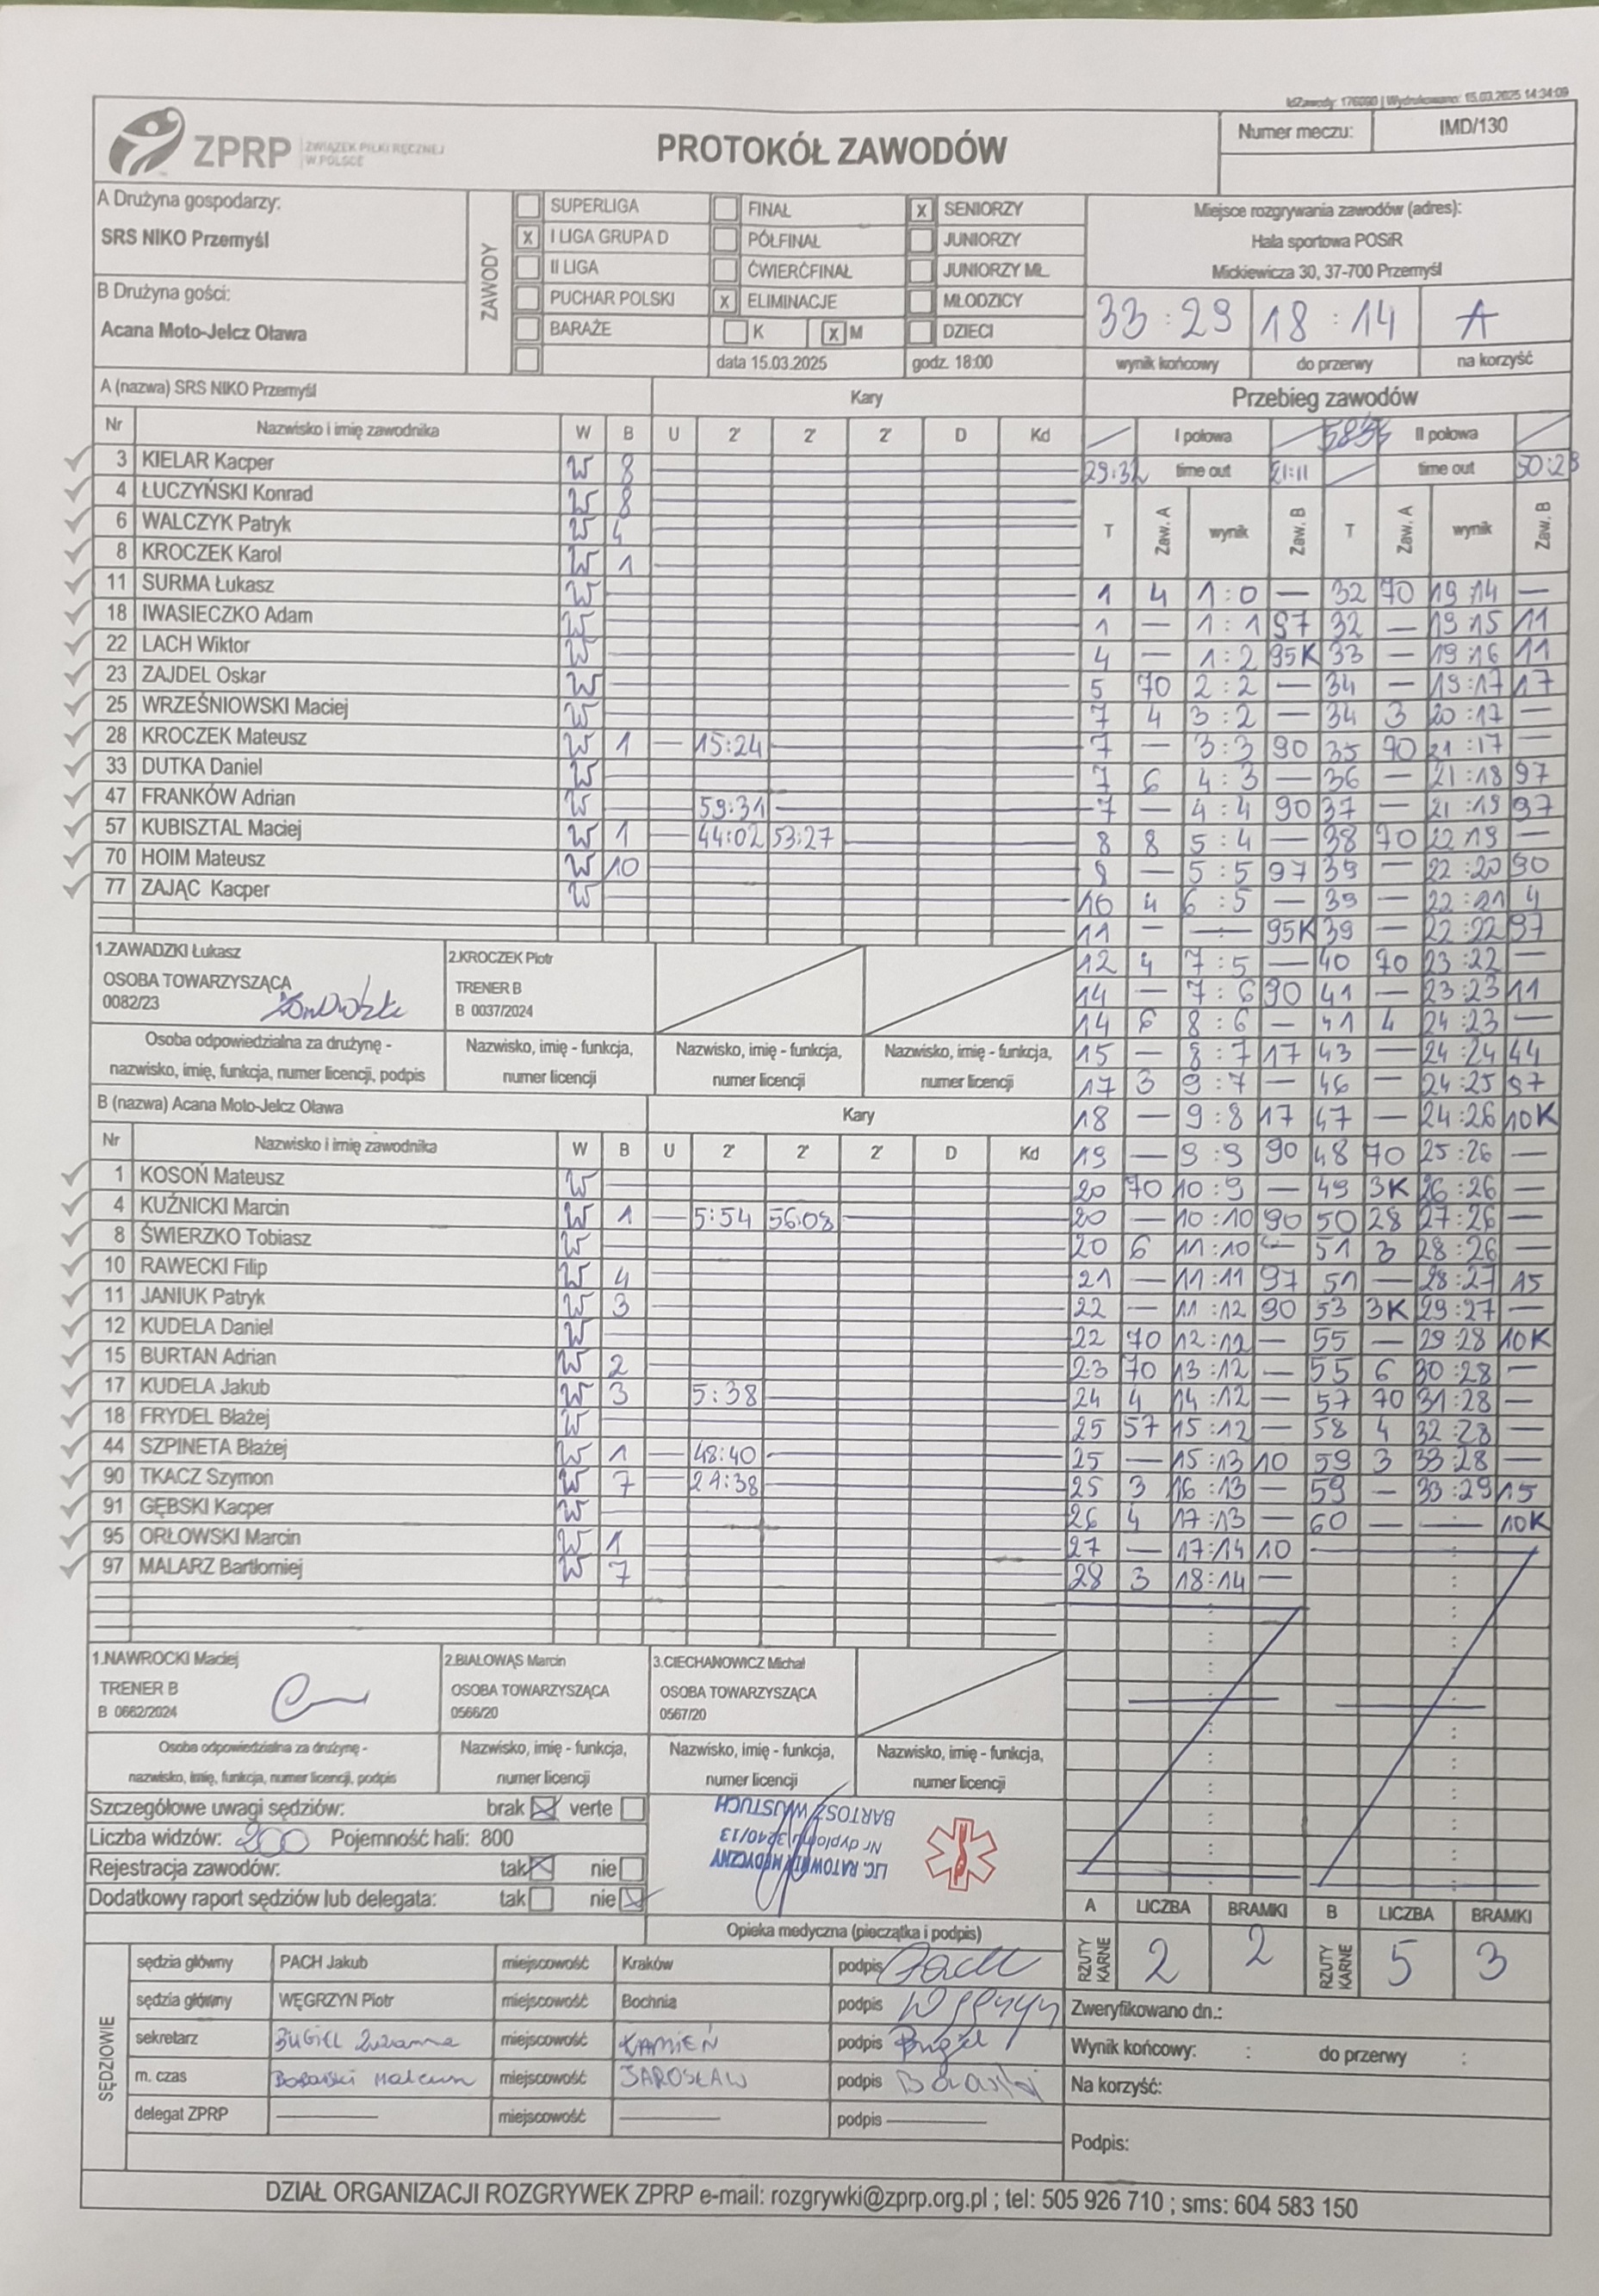 IdZawody: 176090 | Wydrukowano: 15.03.2025 14:34:09
ZPRP ZWIĄZEK PIŁKI RĘCZNEJ W POLSCE
PROTOKÓŁ ZAWODÓW
Numer meczu: IMD/130
A Drużyna gospodarzy:
SRS NIKO Przemyśl
B Drużyna gości:
Acana Moto-Jelcz Oława
ZAWODY
SUPERLIGA
X I LIGA GRUPA D
II LIGA
PUCHAR POLSKI
BARAŻE
FINAŁ
PÓŁFINAŁ
ĆWIERĆFINAŁ
X ELIMINACJE
K X M
data 15.03.2025
X SENIORZY
JUNIORZY
JUNIORZY MŁ.
MŁODZICY
DZIECI
godz. 18:00
Miejsce rozgrywania zawodów (adres):
Hala sportowa POSiR
Mickiewicza 30, 37-700 Przemyśl
33:29 18:14 A
wynik końcowy do przerwy na korzyść
A (nazwa) SRS NIKO Przemyśl Kary
Nr Nazwisko i imię zawodnika W B U 2' 2' 2' D Kd
3 KIELAR Kacper W 8
4 ŁUCZYŃSKI Konrad W 8
6 WALCZYK Patryk W 4
8 KROCZEK Karol W 1
11 SURMA Łukasz W
18 IWASIECZKO Adam W
22 LACH Wiktor W
23 ZAJDEL Oskar W
25 WRZEŚNIOWSKI Maciej W
28 KROCZEK Mateusz W 1 — 15:24
33 DUTKA Daniel W
47 FRANKÓW Adrian W 59:31
57 KUBISZTAL Maciej W 1 — 44:02 53:27
70 HOIM Mateusz W 10
77 ZAJĄC Kacper W
1.ZAWADZKI Łukasz
OSOBA TOWARZYSZĄCA
0082/23
2.KROCZEK Piotr
TRENER B
B 0037/2024
Osoba odpowiedzialna za drużynę -
nazwisko, imię, funkcja, numer licencji, podpis
Nazwisko, imię - funkcja,
numer licencji
Nazwisko, imię - funkcja,
numer licencji
Nazwisko, imię - funkcja,
numer licencji
B (nazwa) Acana Moto-Jelcz Oława Kary
Nr Nazwisko i imię zawodnika W B U 2' 2' 2' D Kd
1 KOSOŃ Mateusz W
4 KUŹNICKI Marcin W 1 — 5:54 56:08
8 ŚWIERZKO Tobiasz W
10 RAWECKI Filip W 4
11 JANIUK Patryk W 3
12 KUDELA Daniel W
15 BURTAN Adrian W 2
17 KUDELA Jakub W 3 5:38
18 FRYDEL Błażej W
44 SZPINETA Błażej W 1 — 48:40
90 TKACZ Szymon W 7 29:38
91 GĘBSKI Kacper W
95 ORŁOWSKI Marcin W 1
97 MALARZ Bartłomiej W 7
1.NAWROCKI Maciej
TRENER B
B 0662/2024
2.BIAŁOWĄS Marcin
OSOBA TOWARZYSZĄCA
0566/20
3.CIECHANOWICZ Michał
OSOBA TOWARZYSZĄCA
0567/20
Osoba odpowiedzialna za drużynę -
nazwisko, imię, funkcja, numer licencji, podpis
Nazwisko, imię - funkcja,
numer licencji
Nazwisko, imię - funkcja,
numer licencji
Nazwisko, imię - funkcja,
numer licencji
Przebieg zawodów
I połowa II połowa
29:32 time out 21:11 time out 50:28
T Zaw. A wynik Zaw. B T Zaw. A wynik Zaw. B
1 4 1:0 — 32 70 19:14 —
1 — 1:1 97 32 — 19:15 11
4 — 1:2 95K 33 — 19:16 11
5 70 2:2 — 34 — 19:17 17
7 4 3:2 — 34 3 20:17 —
7 — 3:3 90 35 70 21:17 —
7 6 4:3 — 36 — 21:18 97
7 — 4:4 90 37 — 21:19 97
8 8 5:4 — 38 70 22:19 —
8 — 5:5 97 39 — 22:20 90
10 4 6:5 — 39 — 22:21 4
11 — : 95K 39 — 22:22 97
12 4 7:5 — 40 70 23:22 —
14 — 7:6 90 41 — 23:23 11
14 6 8:6 — 41 4 24:23 —
15 — 8:7 17 43 — 24:24 44
17 3 9:7 — 46 — 24:25 97
18 — 9:8 17 47 — 24:26 10K
19 — 9:9 90 48 70 25:26 —
20 70 10:9 — 49 3K 26:26 —
20 — 10:10 90 50 28 27:26 —
20 6 11:10 — 51 3 28:26 —
21 — 11:11 97 51 — 28:27 15
22 — 11:12 90 53 3K 29:27 —
22 70 12:12 — 55 — 29:28 10K
23 70 13:12 — 55 6 30:28 —
24 4 14:12 — 57 70 31:28 —
25 57 15:12 — 58 4 32:28 —
25 — 15:13 10 59 3 33:28 —
25 3 16:13 — 59 — 33:29 15
26 4 17:13 — 60 — : 10K
27 — 17:14 10
28 3 18:14 —
Szczegółowe uwagi sędziów: brak X verte
Liczba widzów: 200 Pojemność hali: 800
Rejestracja zawodów: tak X nie
Dodatkowy raport sędziów lub delegata: tak nie X
LIC. RATOWNIK MEDYCZNY
Nr dyplomu 3240/13
BARTOSZ WUSTUCH
Opieka medyczna (pieczątka i podpis)
A LICZBA BRAMKI B LICZBA BRAMKI
RZUTY KARNE 2 2 RZUTY KARNE 5 3
SĘDZIOWIE
sędzia główny PACH Jakub miejscowość Kraków podpis
sędzia główny WĘGRZYN Piotr miejscowość Bochnia podpis
sekretarz miejscowość KAMIEŃ podpis
m. czas miejscowość JAROSŁAW podpis
delegat ZPRP — miejscowość — podpis —
Zweryfikowano dn.:
Wynik końcowy: : do przerwy :
Na korzyść:
Podpis:
DZIAŁ ORGANIZACJI ROZGRYWEK ZPRP e-mail: rozgrywki@zprp.org.pl ; tel: 505 926 710 ; sms: 604 583 150